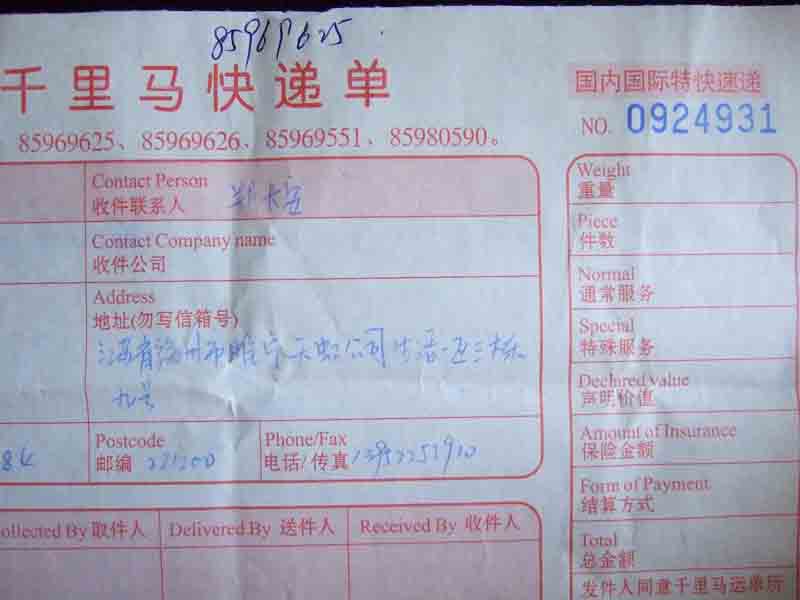 85969625
千里马快递单
国内国际特快速递
85969625、85969626、85969551、85980590。
NO. 0924931
Contact Person
收件联系人
Contact Company name
收件公司
Address
地址(勿写信箱号)
江苏省徐州市睢宁天虹公司生活一区三栋
九号
84
Postcode
邮编 221200
Phone/Fax
电话/传真 13952252910
ollected By 取件人
Delivered By 送件人
Received By 收件人
Weight
重量
Piece
件数
Normal
通常服务
Special
特殊服务
Declared value
声明价值
Amount of Insurance
保险金额
Form of Payment
结算方式
Total
总金额
发件人同意千里马运单所